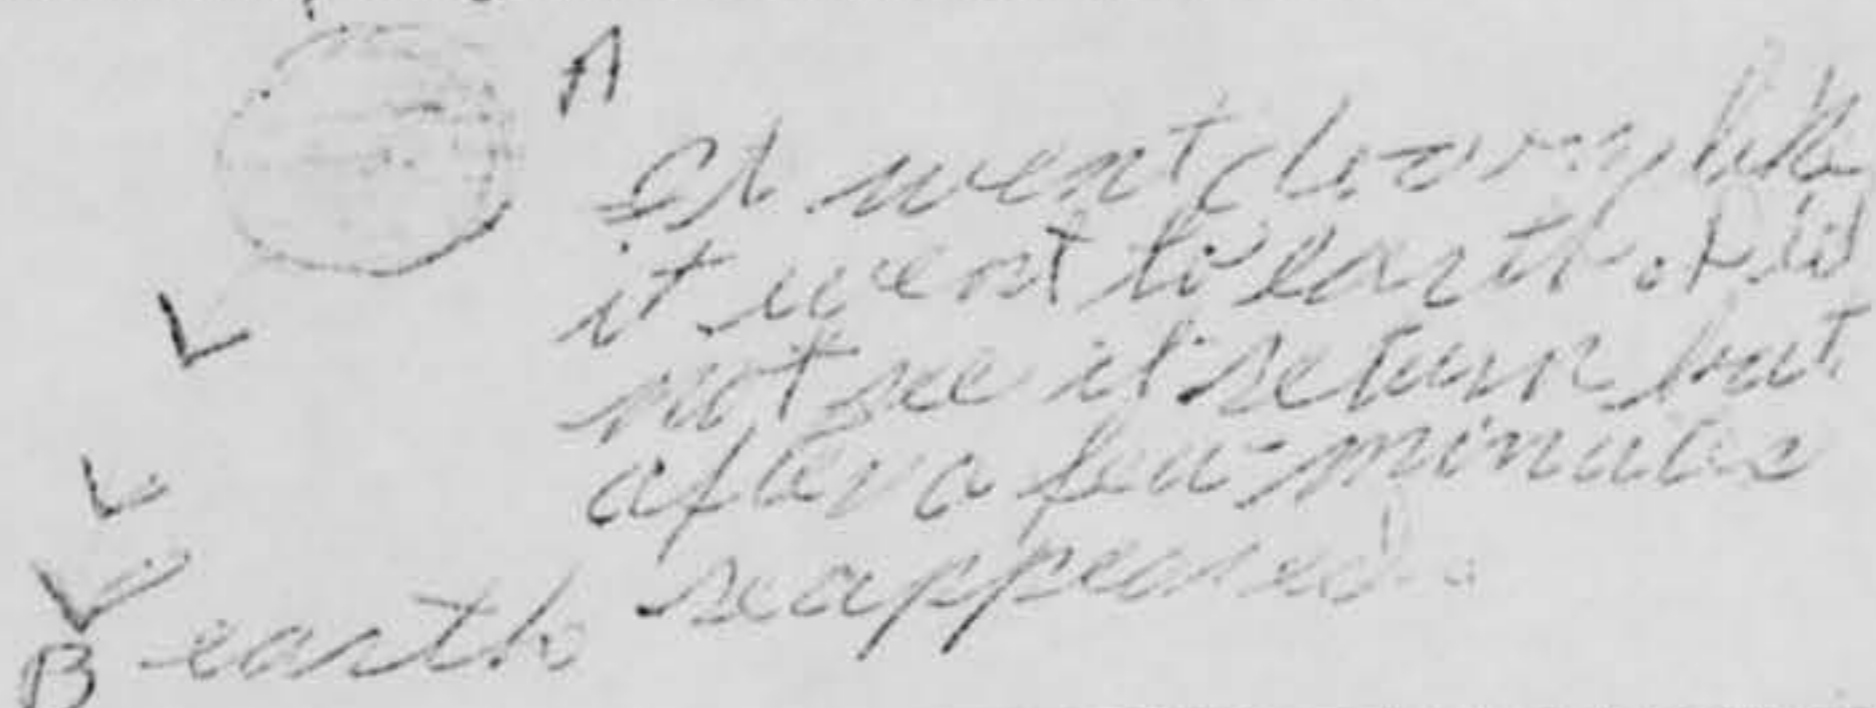 A
It went down like
it went to earth. I did
not see it return but
after a few minutes
reappeared.
B earth